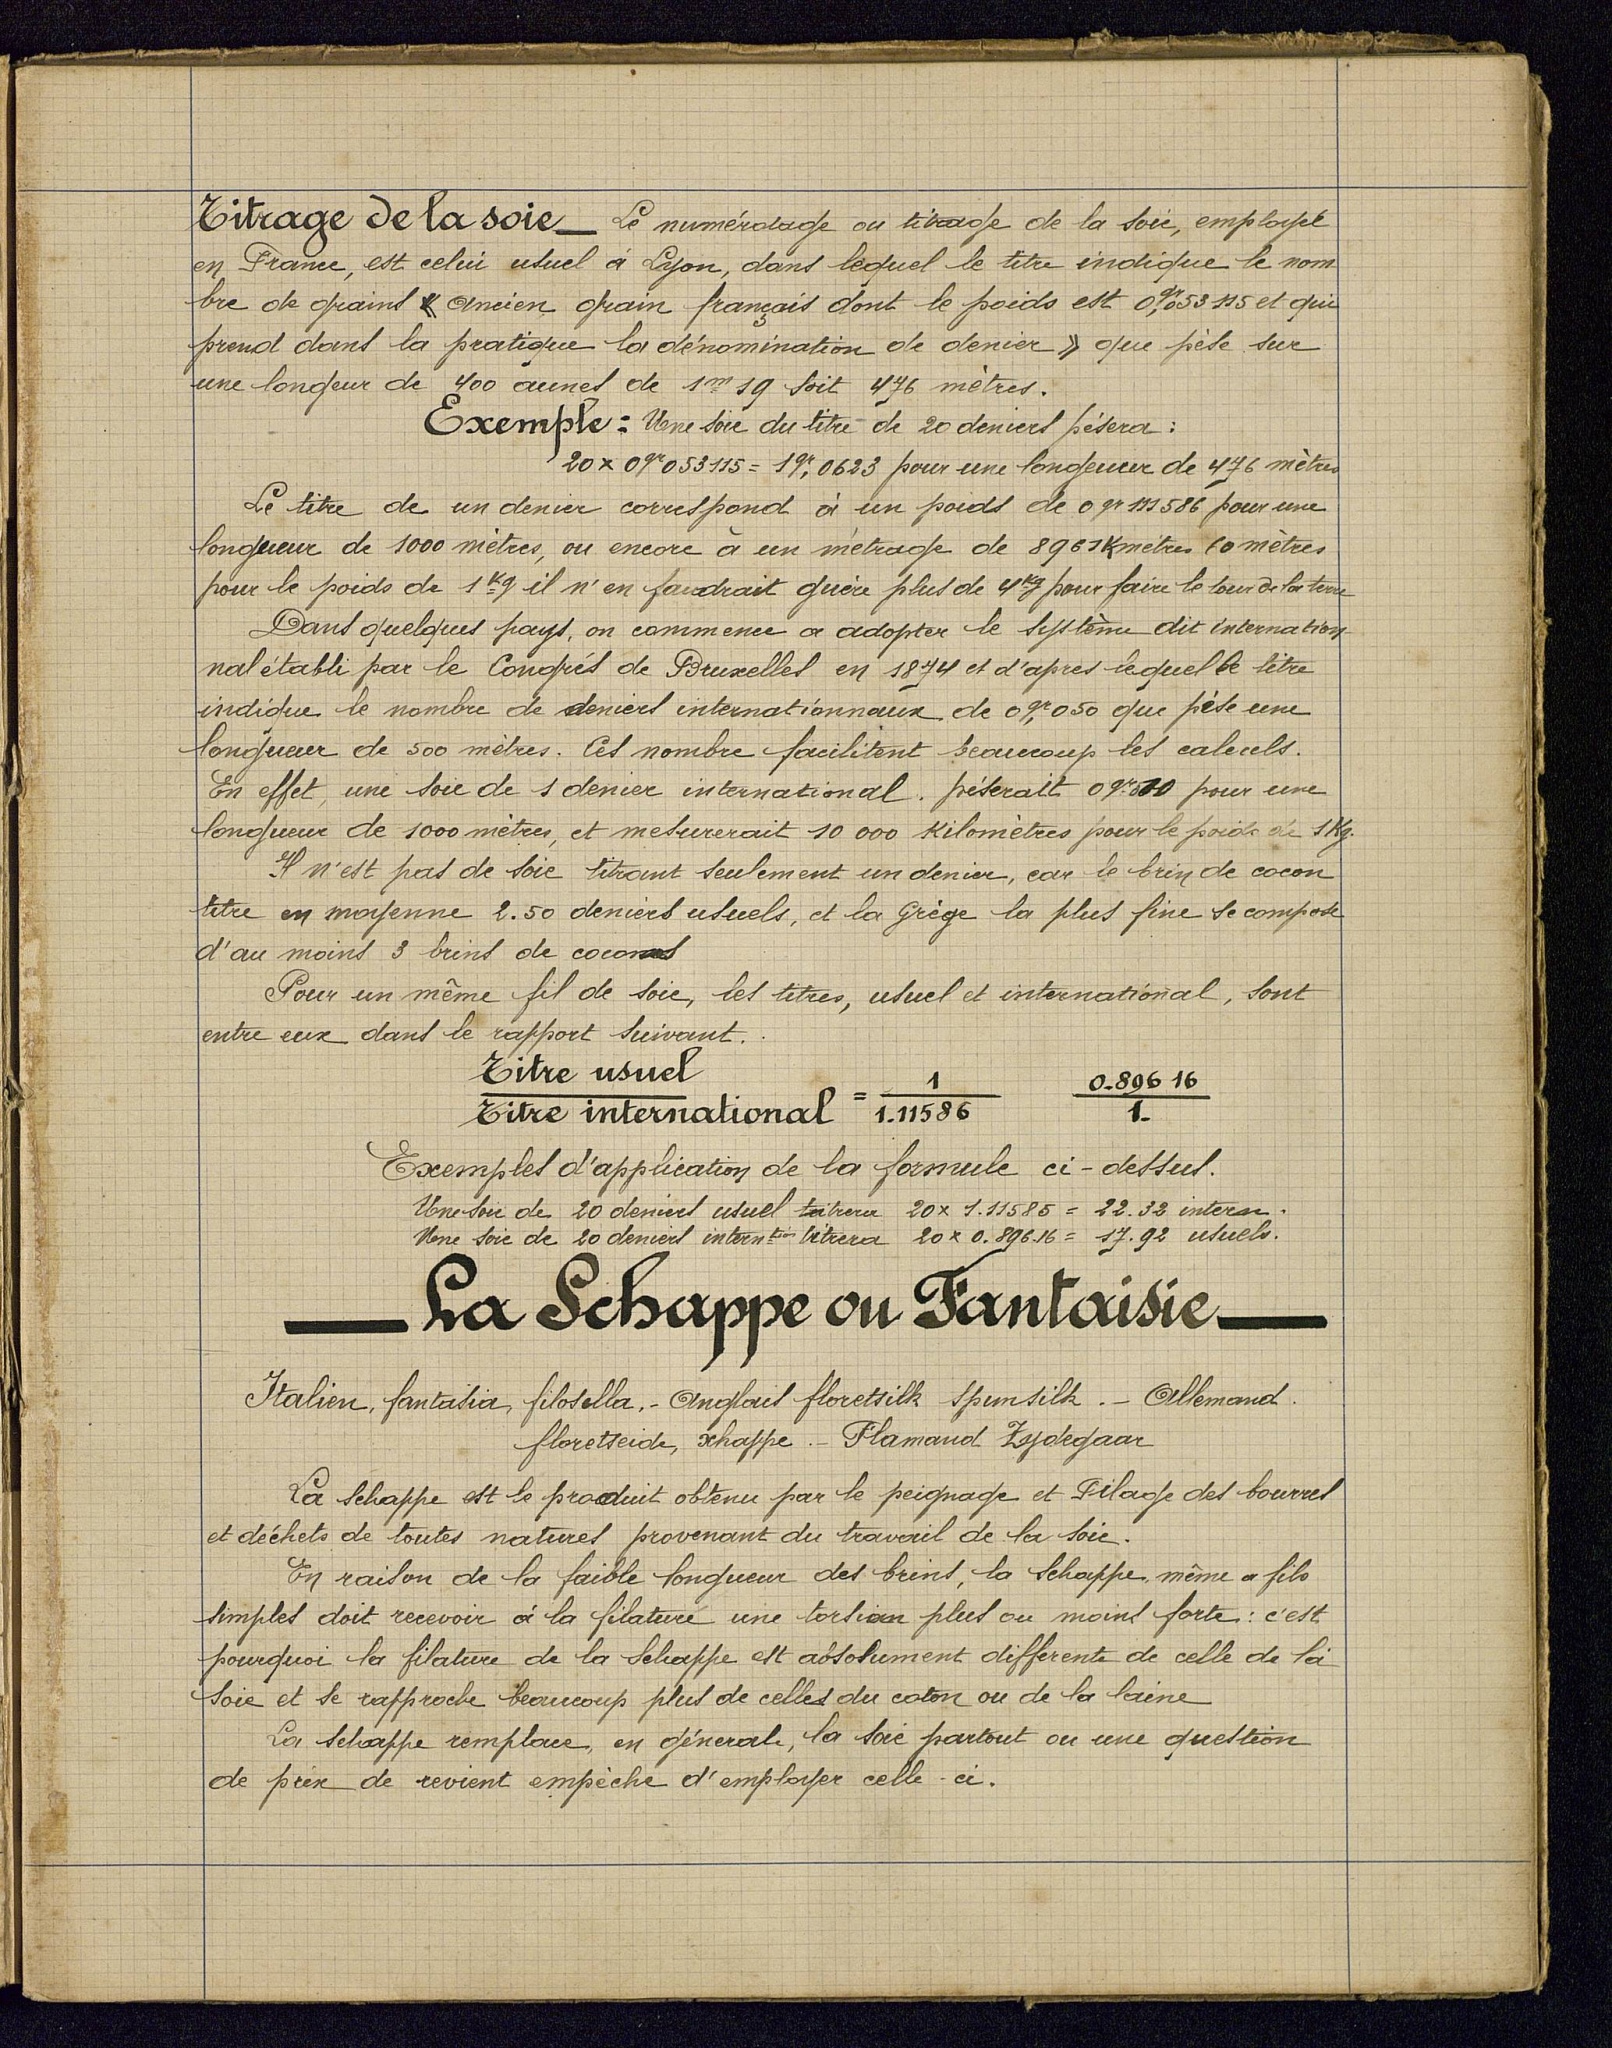 Titrage de la soie_ Le numérotage ou titrage de la soie, employé
en France, est celui usuel à Lyon, dans lequel le titre indique le nom
bre de grains « Ancien grain français dont le poids est 0,gr053115 et qui
prend dans la pratique la dénomination de denier » que pèse sur
une longeur de 400 aunes de 1m 19 soit 476 mètres.
Exemple = Une soie du titre de 20 deniers pésera :
20 x 0gr 053115 = 1gr, 0623 pour une longueur de 476 mètres
Le titre de un denier correspond à un poids de 0 gr 111586 pour une
longueur de 1000 mètres, ou encore à un métrage de 8961 Kmètres 60 mètres
pour le poids de 1 Kg il n'en faudrait guère plus de 4 Kg pour faire le tour de la terre
Dans quelques pays, on commence a adopter le système dit internation
nal établi par le Congrés de Bruxelles en 1874 et d'apres lequel le titre
indique le nombre de deniers internationnaux de 0,gr 050 que pèse une
longueur de 500 mètres. Ces nombre facilitent beaucoup les calculs.
En effet, une soie de 1 denier international. péserait 0gr. 010 pour une
longueur de 1000 mètres, et mesurerait 10 000 Kilomètres pour le poids de 1 Kg.
Il n'est pas de soie titrant seulement un denier, car le brin de cocon
titre en moyenne 2.50 deniers usuels, et la Grège la plus fine se compose
d'au moins 3 brins de cocons
Pour un même fil de soie, les titres, usuel et international, sont
entre eux dans le rapport suivant.
Titre usuel / Titre international = 1 / 1.11586 0.896 16 / 1.
Exemples d'application de la formule ci-dessus.
Une soie de 20 deniers usuel titrera 20 x 1.11585 = 22.32 intern.
Une soie de 20 deniers interntion titrera 20 x 0.896.16 = 17.92 usuels.
La Schappe ou Fantaisie
Italien, fantasia, filosella,- Anglais floretsilk spunsilk. - Allemand.
floretseide, schappe. - Flamand Zydegaar
La schappe est le produit obtenu par le peignage et Filage des bourres
et déchets de toutes natures provenant du travail de la soie.
En raison de la faible longueur des brins, la schappe même a fils
simples doit recevoir à la filature une torsion plus ou moins forte : c'est
pourquoi la filature de la schappe est absolument differente de celle de la
soie et se rapproche beaucoup plus de celles du coton ou de la laine
La schappe remplace, en générale, la soie partout ou une question
de prix de revient empèche d'employer celle-ci.